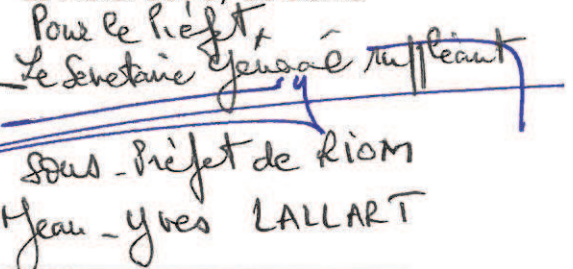 Pour le Préfet,
Le Secrétaire Général suppléant
Sous-Préfet de RIOM
Jean-Yves LALLART